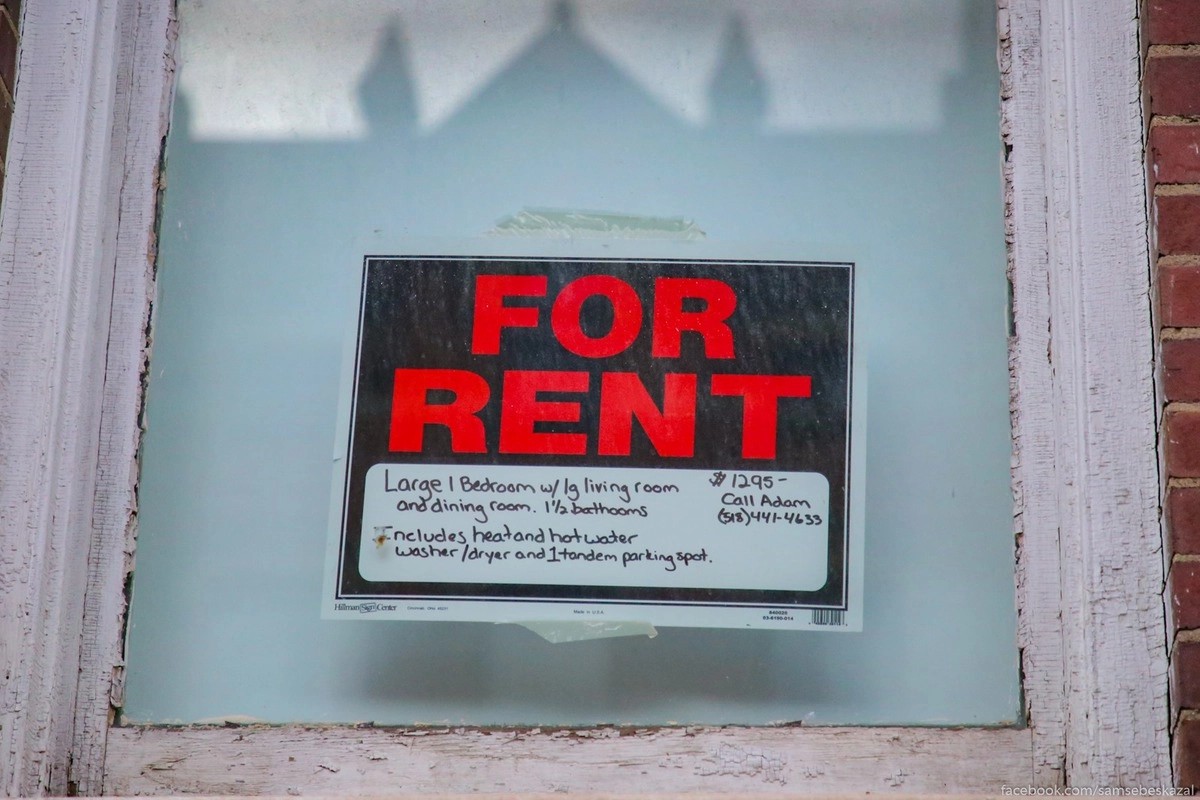 FOR
RENT
Large 1 Bedroom w/ lg living room
and dining room. 1 1/2 bathooms
Includes heat and hot water
washer/dryer and 1 tandem parking spot.
$1295-
Call Adam
(518) 441-4633
Hillman Sign Center
Made in U.S.A.
facebook.com/samsebeskazal